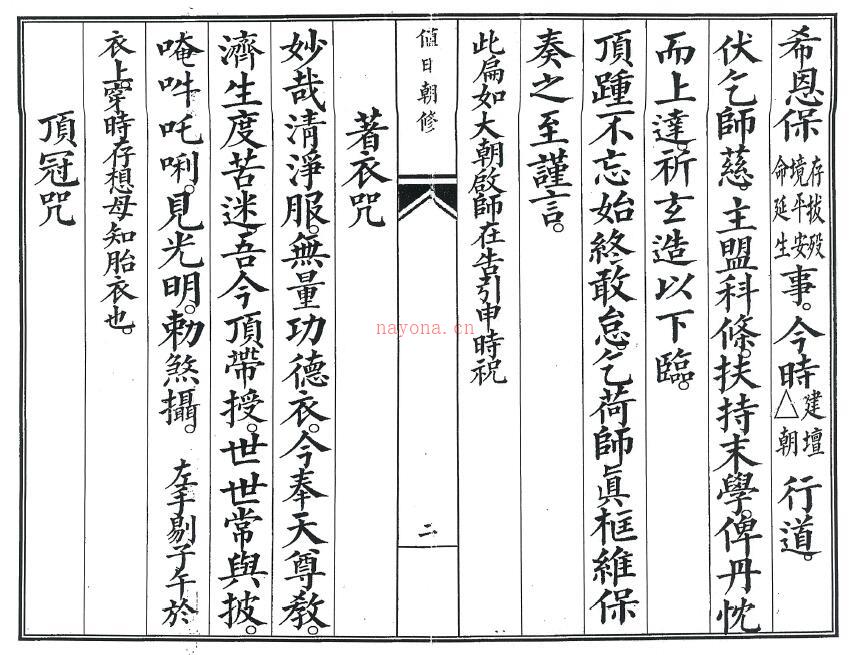 希恩保存拔殁境平安命延生事。今時建壇△朝行道。
伏乞師慈。主盟科條。扶持末學。俾丹忱
而上達。祈玄造以下臨。
頂踵不忘始終敢怠。乞荷師眞框維保
奏之至謹言。
此扁如大朝啟師在告引申時祝
値日朝修
二
著衣咒
妙哉清淨服。無量功德衣。今奉天尊教。
濟生度苦迷。吾今頂帶授。世世常與披。
唵吽吒唎。見光明。勅煞攝。左手剔子午於
衣上。穿時存想母知胎衣也。
頂冠咒
nayona.cn